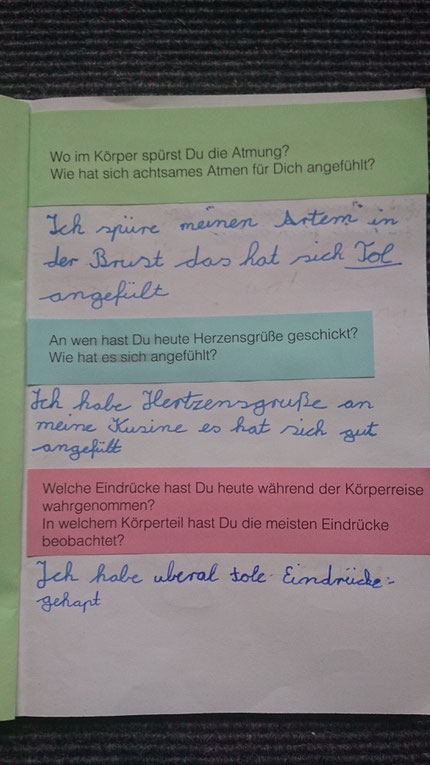 Wo im Körper spürst Du die Atmung?
Wie hat sich achtsames Atmen für Dich angefühlt?
Ich spüre meinen Artem in
der Brust das hat sich Tol
angefült
An wen hast Du heute Herzensgrüße geschickt?
Wie hat es sich angefühlt?
Ich habe Hertzensgruße an
meine Kusine es hat sich gut
angefült
Welche Eindrücke hast Du heute während der Körperreise
wahrgenommen?
In welchem Körperteil hast Du die meisten Eindrücke
beobachtet?
Ich habe uberal tole Eindrücke
gehapt